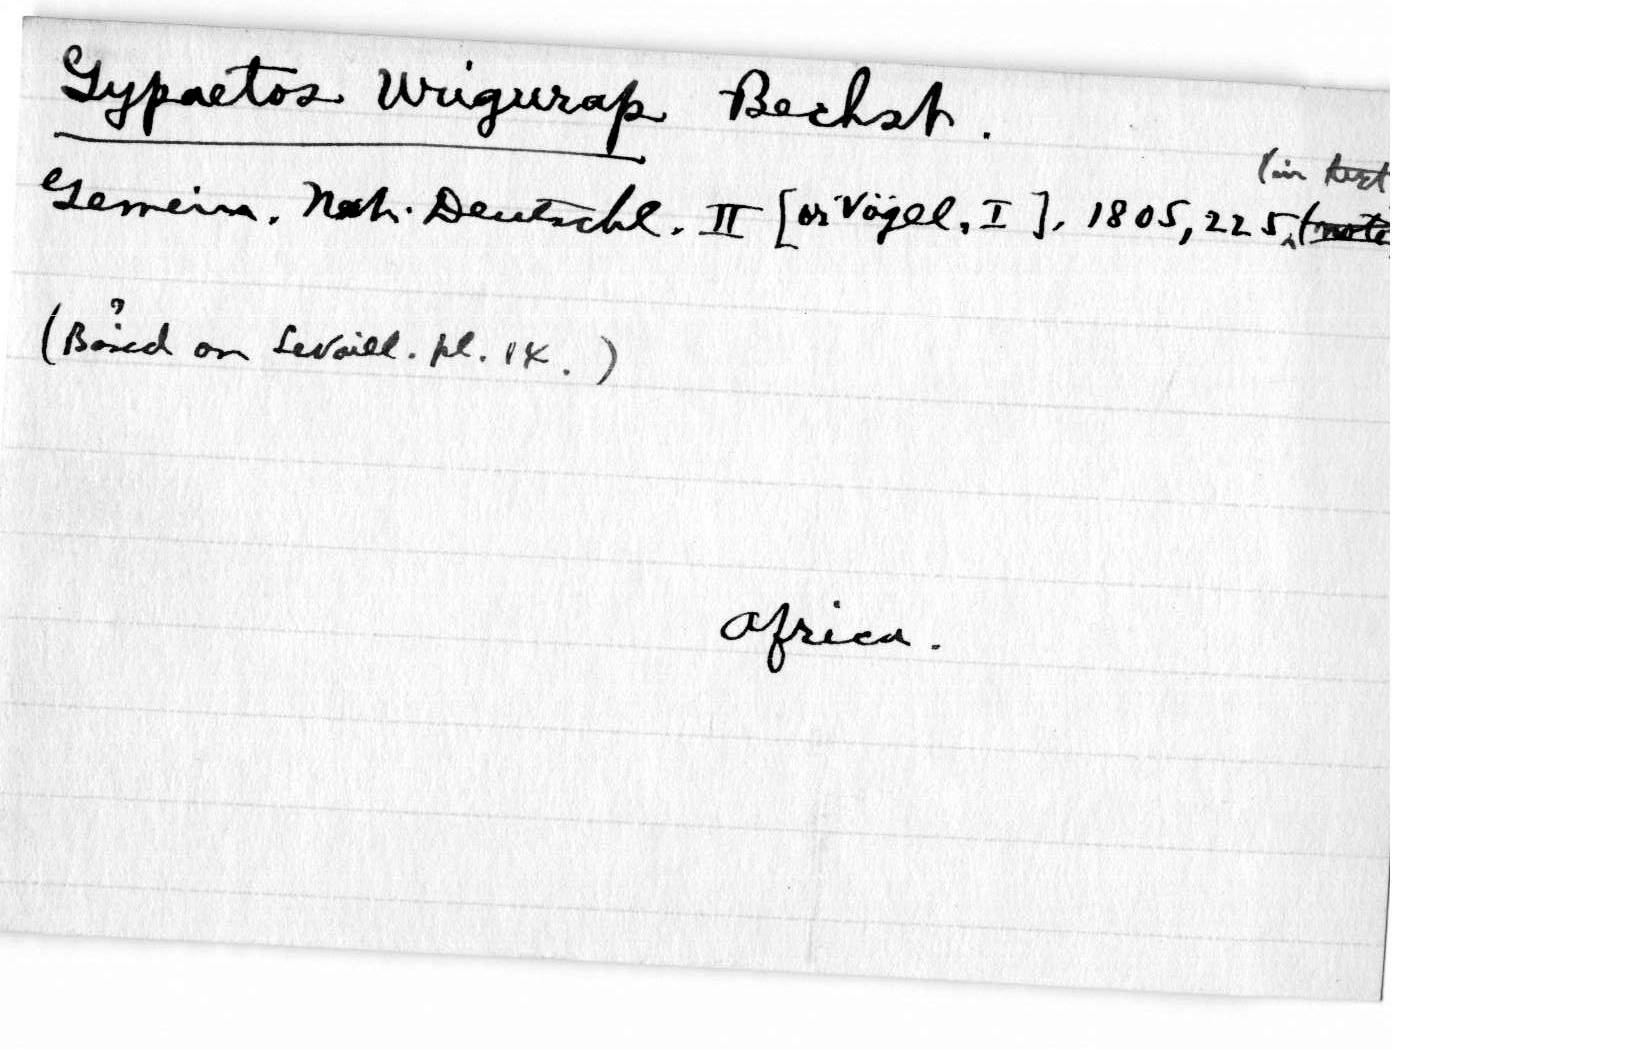 Gypaetos Urigurap Bechst.
(in text
Gemein. Nat. Deutschl. II [or Vögel, I], 1805, 225, (note
?
(Based on Levaill. pl. 14.)
Africa.